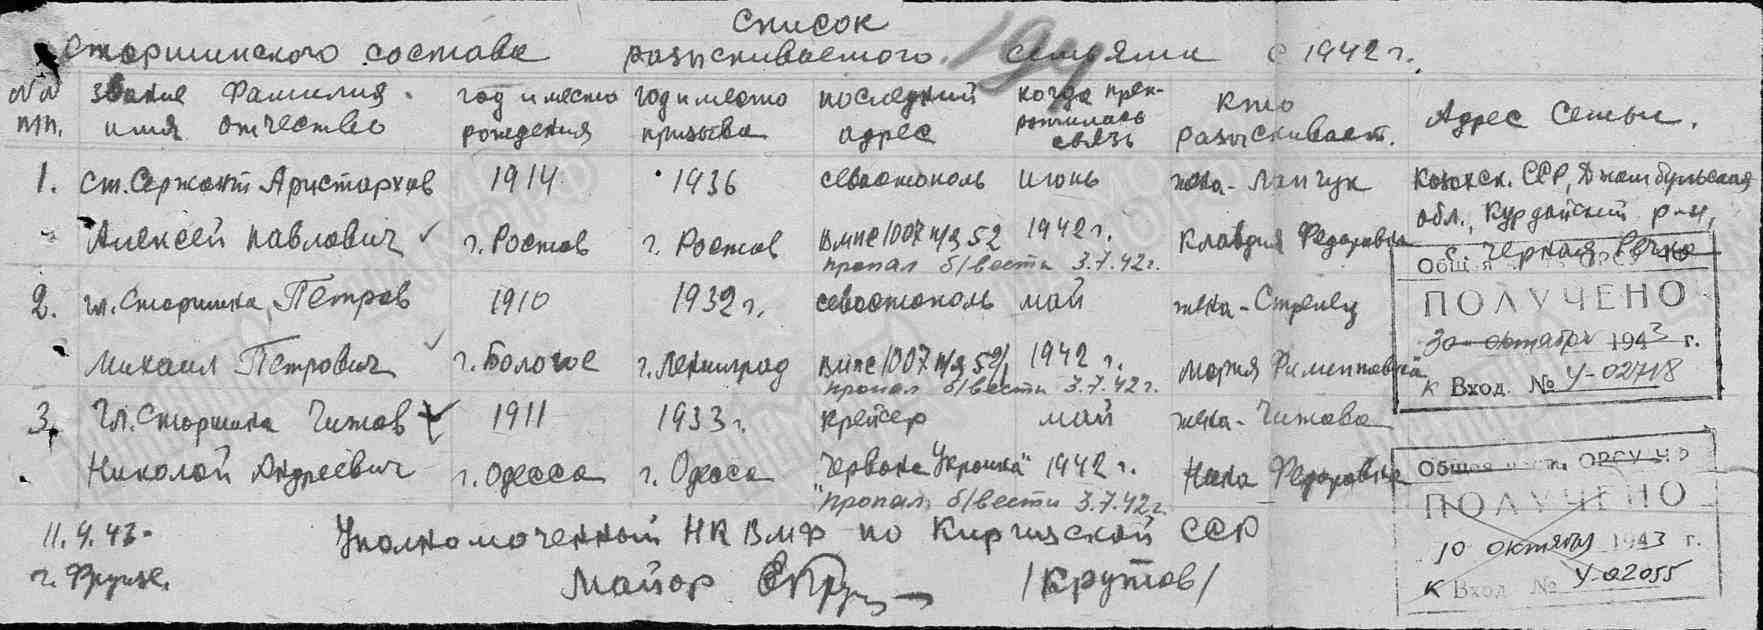 Список
старшинского состава разыскиваемого семьями с 1942 г.
№№ звание Фамилия год и место год и место последний когда прек- кто Адрес Семьи.
пп. имя отчество рождения призыва адрес ратилась разыскивает.
связь
1. ст. Сержант Аристархов 1914 1936 севастополь июнь жена - Лапчук Казахск. ССР, Джамбульская
Алексей Павлович г. Ростов г. Ростов вмпс 1007 п/я 52 1942 г. Клавдия Федоровна обл., Курдайский р-н,
пропал б/вести 3.7.42 г. с. Черная Речка
2. гл. Старшина Петров 1910 1932 г. севастополь май жена - Стрелец
Михаил Петрович г. Бологое г. Ленинград вмпс 1007 п/я 52 1942 г. Мария
пропал б/вести 3.7.42 г.
3. Гл. Старшина Чижов 1911 1933 г. крейсер май жена - Чижова
Николай Андреевич г. Одесса г. Одесса "Червона Украина" 1942 г. Федоровна
пропал б/вести 3.7.42 г.
11.9.43 Уполномоченный НК ВМФ по Киргизской ССР
г. Фрунзе. Майор /Крутов/
ОРСУ
ПОЛУЧЕНО
30 октября 1943 г.
к Вход. № У-02718
Общая ОРСУ
ПОЛУЧЕНО
10 октября 1943 г.
К Вход. № У-02055